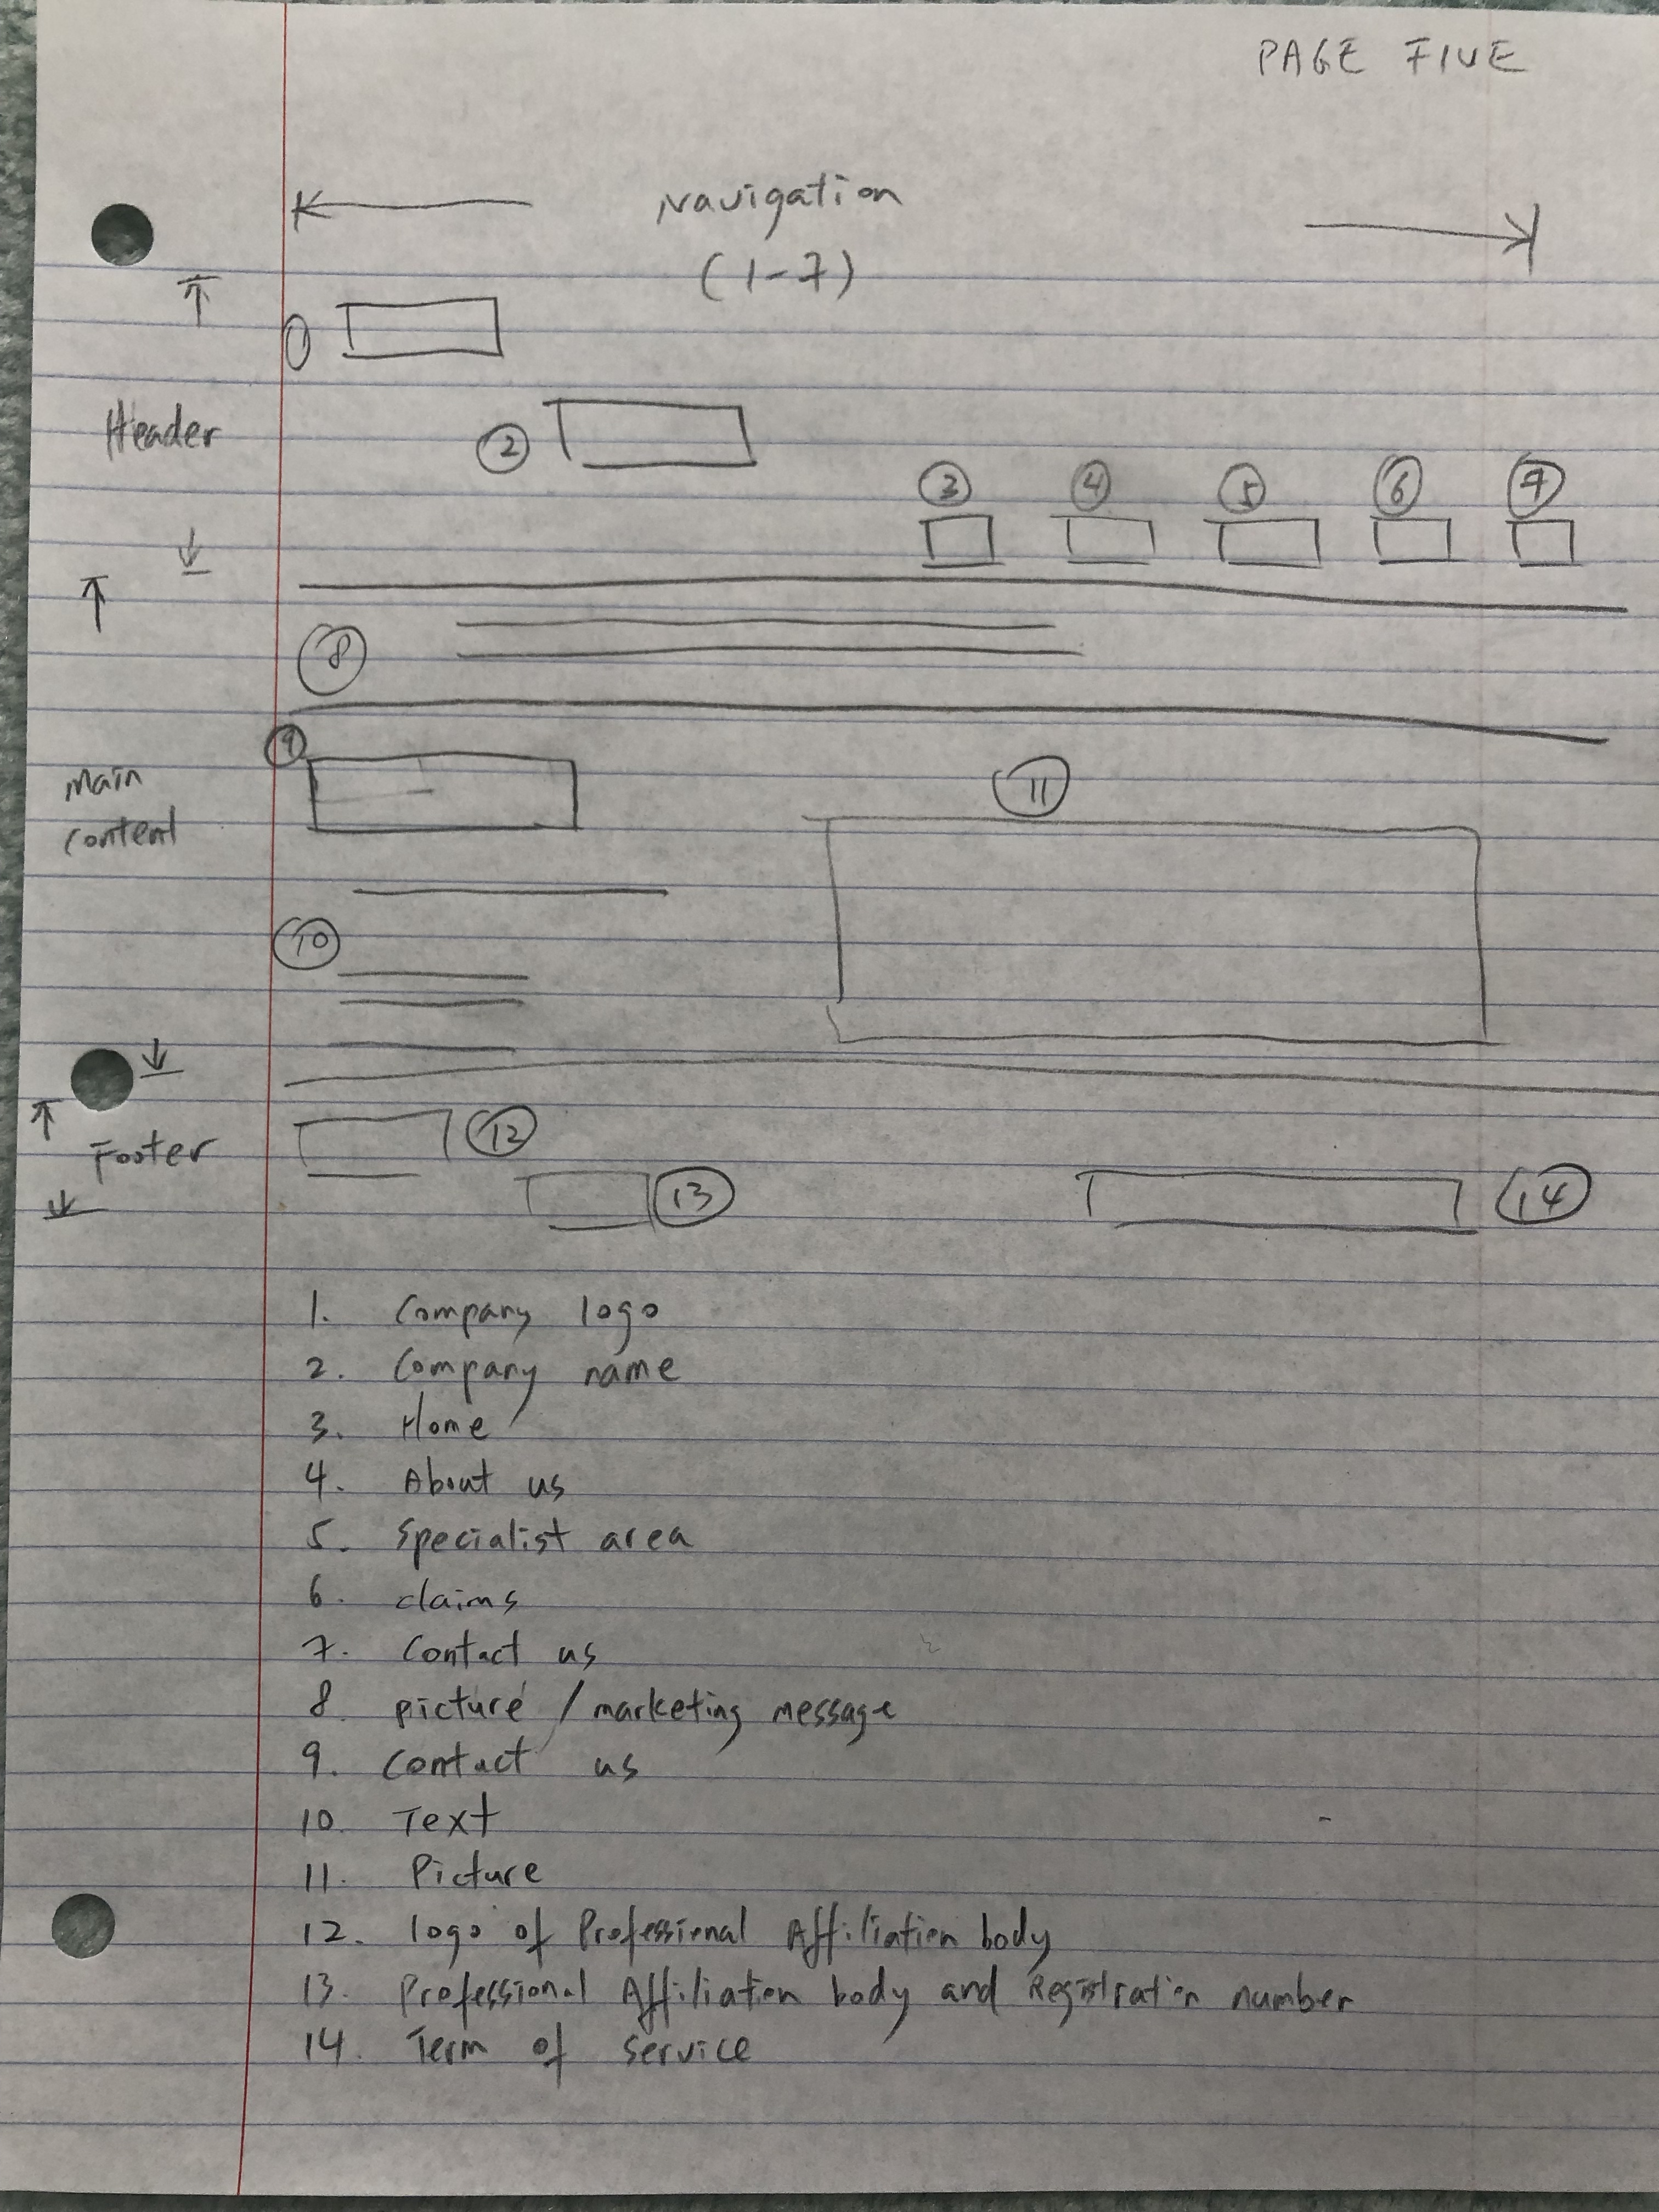 PAGE FIVE
Navigation
(1-7)
1
Header
2
3 4 5 6 7
8
9
Main
content
11
10
12
Footer
13
14
1. Company logo
2. Company name
3. Home
4. About us
5. Specialist area
6. claims
7. Contact us
8. picture / marketing message
9. Contact us
10. Text
11. Picture
12. logo of Professional Affiliation body
13. Professional Affiliation body and Registration number
14. Term of service